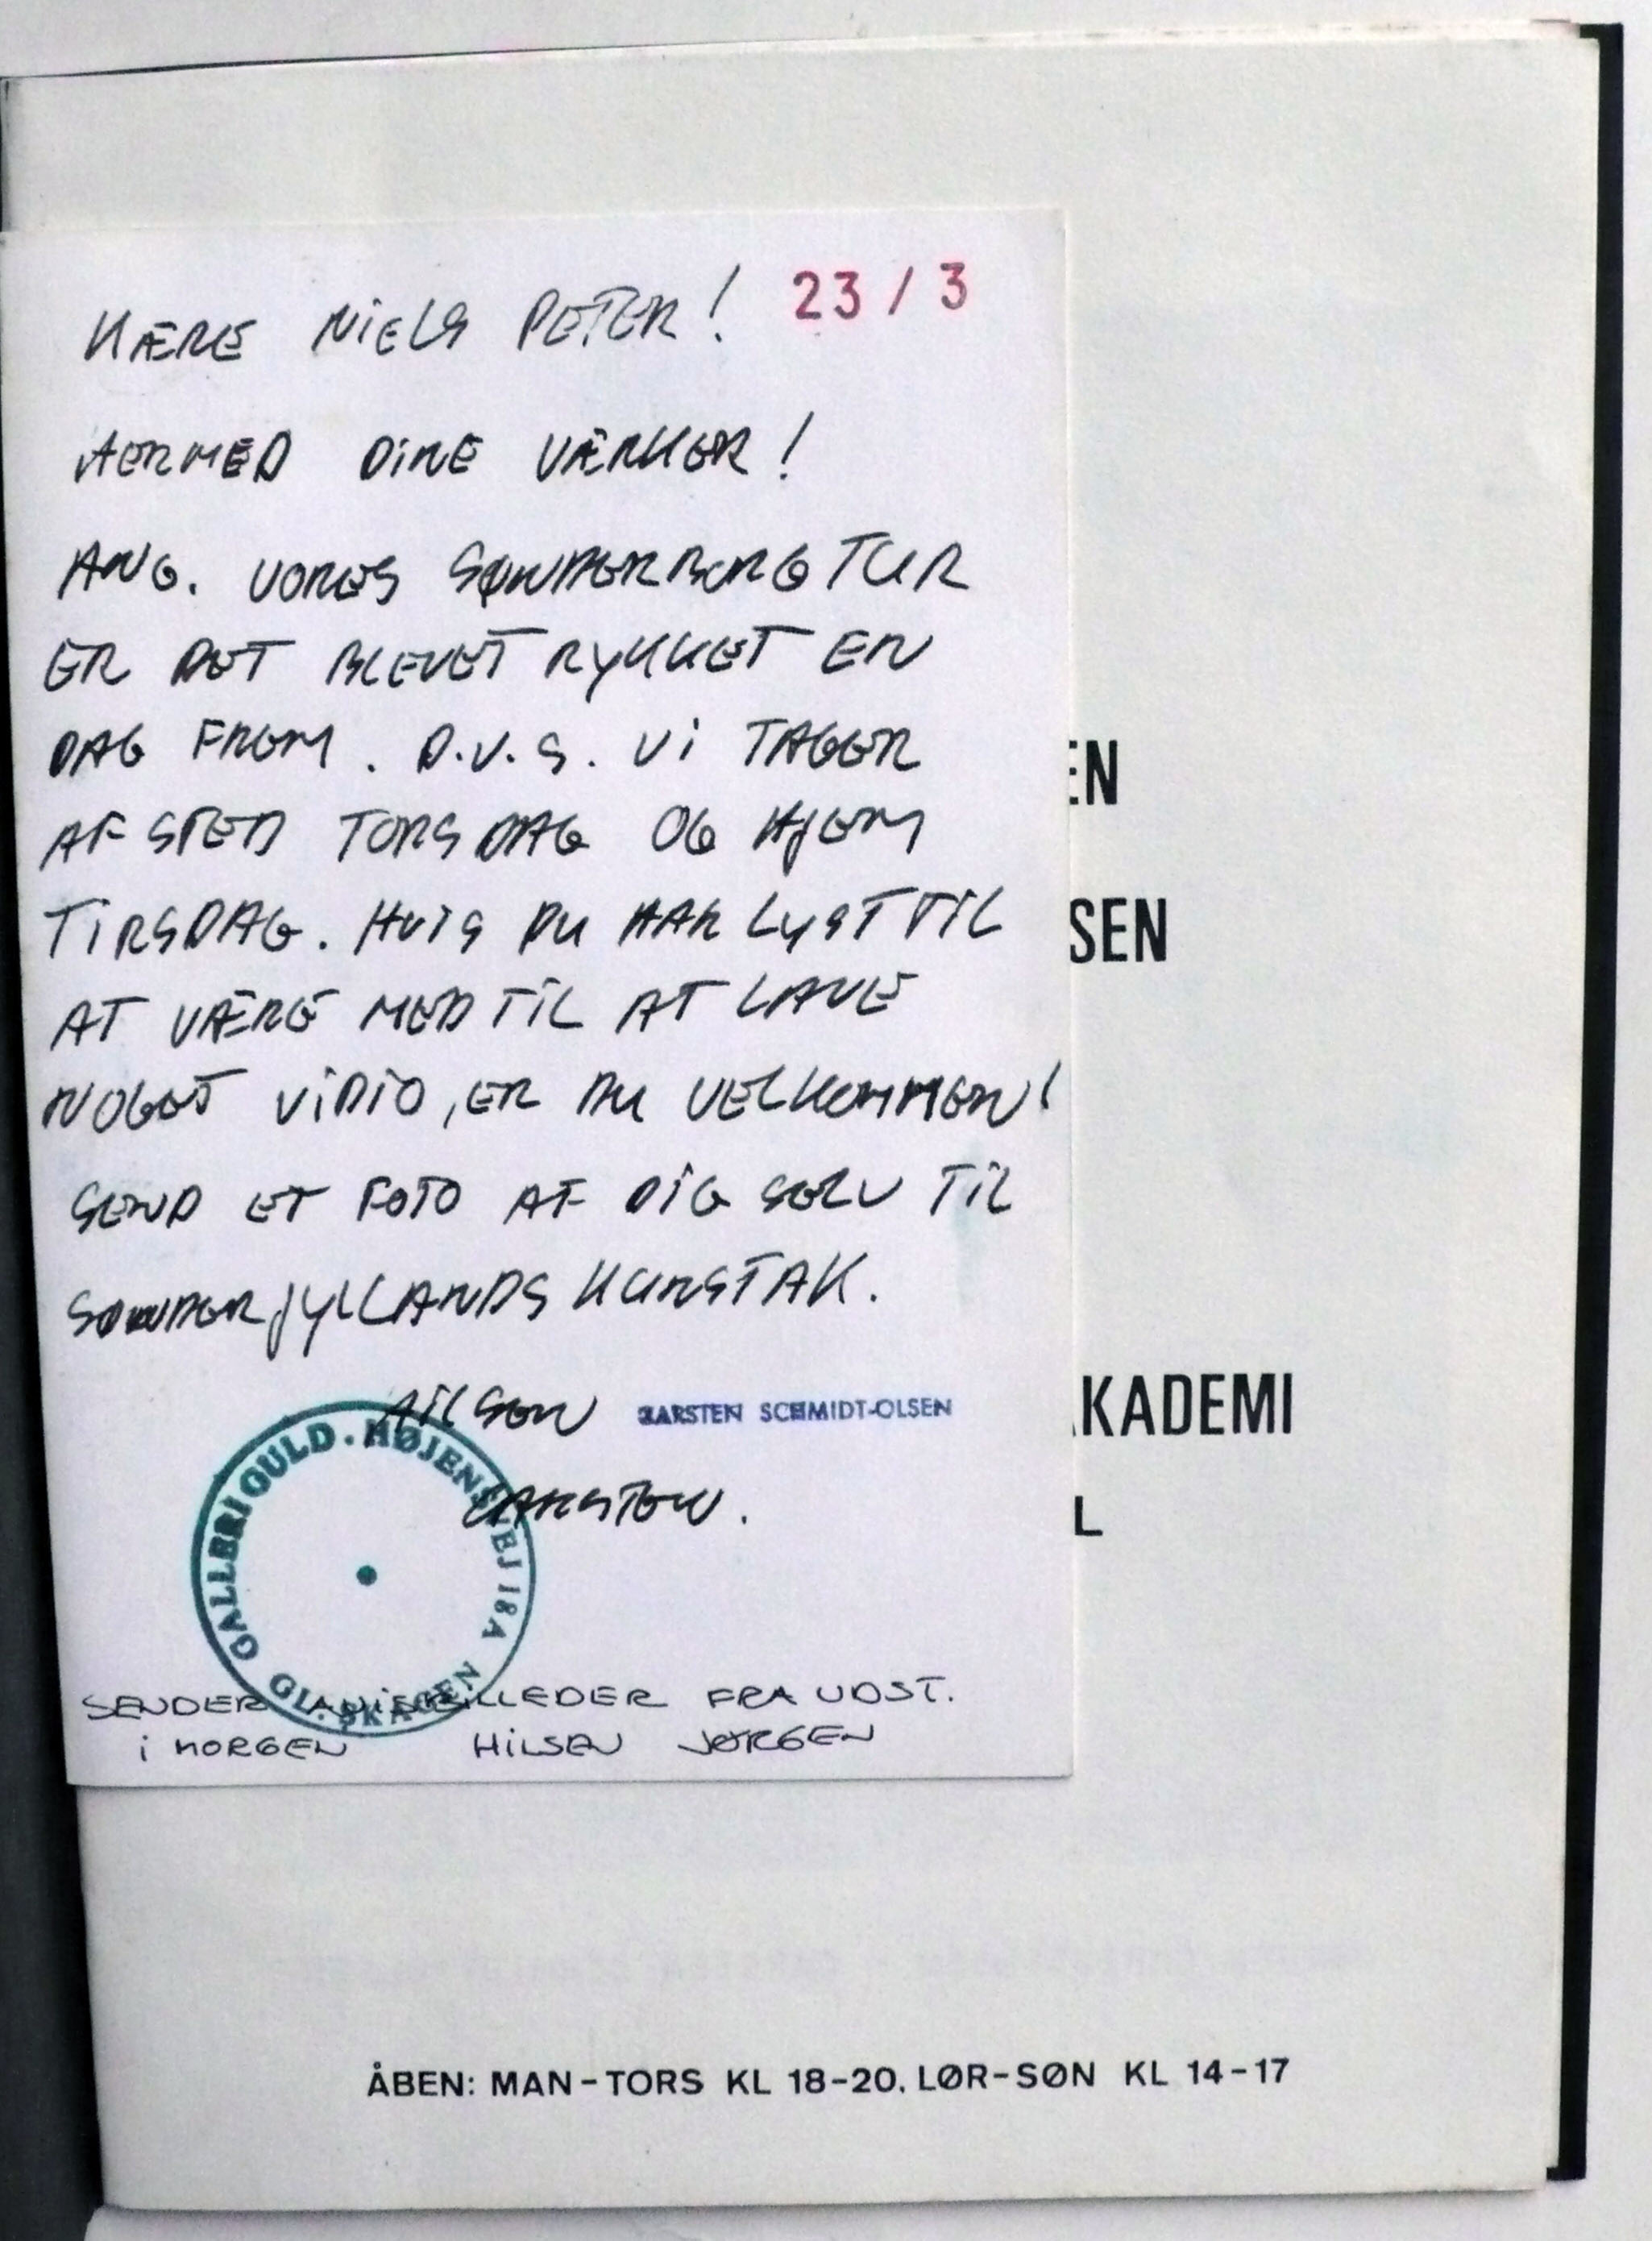 KÆRE NIELS PETER! 23/3
HERMED DINE VÆRKER!
ANG. VORES SØNDERBORG TUR
ER DET BLEVET RYKKET EN
DAG FREM. D.V.S. Vi TAGER
AF STED TORSDAG OG HJEM
TIRSDAG. HVIS DU HAR LYST TIL
AT VÆRE MED TIL AT LAVE
NOGET ViDiO, ER DU VELKOMMEN!
SEND ET FOTO AF DIG SELV TIL
SØNDERJYLLANDS KUNSTAK.
HILSEN CARSTEN SCHMIDT-OLSEN
CARSTEN.
GALLERI GULD · HØJENSVEJ 18A
GL. SKAGEN
SENDER AVISBILLEDER FRA UDST.
i MORGEN HILSEN JØRGEN
EN
SEN
KADEMI
L
ÅBEN: MAN-TORS KL 18-20. LØR-SØN KL 14-17